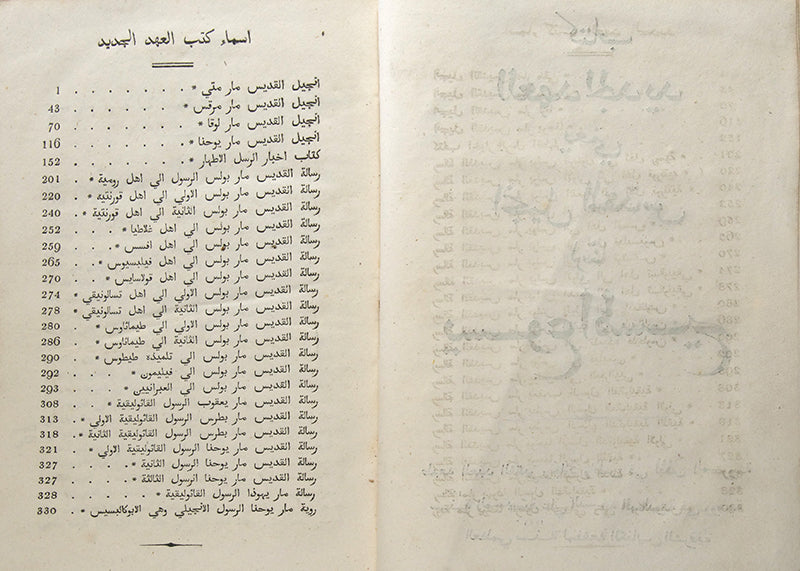 اسماء كتب العهد الجديد
انجيل القديس مار متي * . . . . . . . 1
انجيل القديس مار مرقس * . . . . . . 43
انجيل القديس مار لوقا * . . . . . . 70
انجيل القديس مار يوحنا * . . . . . . 116
كتاب اخبار الرسل الاطهار * . . . . . 152
رسالة القديس مار بولس الرسول الي اهل رومية * . 201
رسالة القديس مار بولس الاولي الي اهل قورنتية * . 220
رسالة القديس مار بولس الثانية الي اهل قورنتية * . 240
رسالة القديس مار بولس الي اهل غلاطيا * . . . 252
رسالة القديس مار بولس الي اهل افسس * . . . 259
رسالة القديس مار بولس الي اهل فيلبسيوس * . . 265
رسالة القديس مار بولس الي اهل قولاسايس * . . 270
رسالة القديس مار بولس الاولي الي اهل تسالونيقي * . 274
رسالة القديس مار بولس الثانية الي اهل تسالونيقي * . 278
رسالة القديس مار بولس الاولي الي طيماتاوس * . . 280
رسالة القديس مار بولس الثانية الي طيماتاوس * . . 286
رسالة القديس مار بولس الي تلميذه طيطوس * . . 290
رسالة القديس مار بولس الي فيليمون * . . . . 292
رسالة القديس مار بولس الي العبرانيين * . . . . 293
رسالة القديس مار يعقوب الرسول القاثوليقية * . . 308
رسالة القديس مار بطرس الرسول القاثوليقية الاولي * . 313
رسالة القديس مار بطرس الرسول القاثوليقية الثانية * . 318
رسالة القديس مار يوحنا الرسول القاثوليقية الاولي * . 321
رسالة القديس مار يوحنا الرسول الثانية * . . . . 327
رسالة القديس مار يوحنا الرسول الثالثة * . . . . 327
رسالة مار يهوذا الرسول القاثوليقية * . . . . 328
روية مار يوحنا الرسول الانجيلي وهي الابوكالبسيس * . 330
كتاب
العهد الجديد
يعني
انجيل المقدس
لربنا
يسوع المسيح